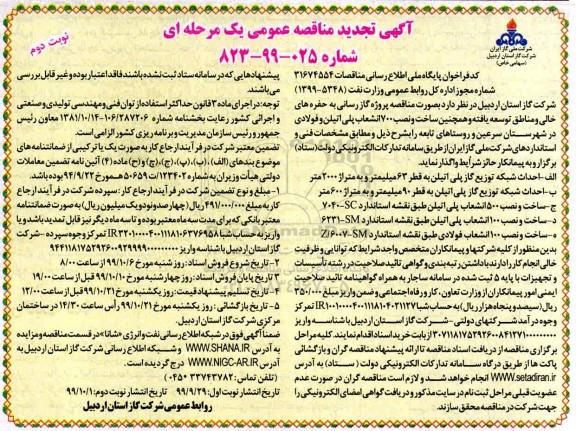 آگهی تجدید مناقصه عمومی یک مرحله ای
شماره ۰۲۵-۹۹-۸۲۳
نوبت دوم
شرکت ملی گاز ایران
شرکت گاز استان اردبیل
(سهامی خاص)
کد فراخوان پایگاه ملی اطلاع رسانی مناقصات ۳۱۶۷۴۵۵۴
شماره مجوز اداره کل روابط عمومی وزارت نفت (۵۳۴۸-۱۳۹۹)
شرکت گاز استان اردبیل در نظر دارد بصورت مناقصه پروژه گاز رسانی به حفره های
خالی و مناطق توسعه یافته و همچنین ساخت و نصب ۷۰۰ انشعاب پلی اتیلن و فولادی
در شهرستان سرعین و روستاهای تابعه را بشرح ذیل و مطابق مشخصات فنی و
استانداردهای شرکت ملی گاز ایران از طریق سامانه تدارکات الکترونیکی دولت (ستاد)
برگزار و به پیمانکار حائز شرایط واگذار نماید.
الف-احداث شبکه توزیع گاز پلی اتیلن به قطر ۶۳ میلیمتر و به متراژ ۲۰۰۰ متر
ب-احداث شبکه توزیع گاز پلی اتیلن به قطر ۹۰ میلیمتر و به متراژ ۶۰۰ متر
ج-ساخت و نصب ۵۰۰ انشعاب پلی اتیلن طبق نقشه استاندارد ۷۰۴۰-SC
د-ساخت و نصب ۱۰۰ انشعاب پلی اتیلن طبق نقشه استاندارد ۶۲۳۱-SM
ه-ساخت و نصب ۱۰۰ انشعاب فولادی طبق نقشه استاندارد ۷/۶۰۰-SM
بدین منظور از کلیه شرکتها و پیمانکاران متخصص واجد شرایط که توانایی و ظرفیت
خالی انجام کار را دارند با داشتن رتبه بندی و گواهی تائید صلاحیت در رشته تأسیسات
و تجهیزات با پایه ۵ ثبت شده در سامانه ساجار به همراه گواهینامه تائید صلاحیت
ایمنی امور پیمانکاران از وزارت تعاون، کار و رفاه اجتماعی و ضمن واریز مبلغ ۳۵۰/۰۰۰
ریال (سیصد و پنجاه هزار ریال) به حساب شبا IR۱۰۰۱۰۰۰۰۴۰۰۱۱۱۸۱۰۴۰۲۱۱۲۷ تمرکز
وجوه درآمد شرکتهای دولتی - شرکت گاز استان اردبیل با شناسه واریز
از بابت خرید اسناد اقدام نمایند. کلیه مراحل
برگزاری مناقصه از دریافت اسناد مناقصه تا ارائه پیشنهاد مناقصه گران و بازگشائی
پاکت ها از طریق درگاه سامانه تدارکات الکترونیکی دولت ( ستاد) به آدرس
www.setadiran.ir انجام خواهد شد و لازم است مناقصه گران در صورت عدم
عضویت قبلی مراحل ثبت نام در سایت مذکور و دریافت گواهی امضای الکترونیکی را
جهت شرکت در مناقصه محقق سازند.
پیشنهادهایی که در سامانه ستاد ثبت نشده باشند فاقد اعتبار بوده و غیر قابل بررسی
می باشند.
توجه: در اجرای ماده ۳ قانون حداکثر استفاده از توان فنی و مهندسی تولیدی و صنعتی
و اجرائی کشور رعایت بخشنامه شماره ۱۰۶/۲۸۷۲۰۶-۱۳۸۱/۱۰/۱۴ معاون رئیس
جمهور و رئیس سازمان مدیریت و برنامه ریزی کشور الزامی است.
تضمین معتبر شرکت در فرآیند ارجاع کار به صورت یک یا ترکیبی از ضمانتنامه های
موضوع بندهای (الف)، (ب)، (پ)، (ج)، (چ) و (ح) ماده (۴) آئین نامه تضمین معاملات
دولتی هیأت وزیران به شماره ۱۲۳۴۰۲/ت۵۰۶۵۹ه مورخ ۹۴/۹/۲۲ بوده باشد.
۱-مبلغ و نوع تضمین شرکت در فرآیند ارجاع کار: سپرده شرکت در فرآیند ارجاع
کار ۴۹۱/۰۰۰/۰۰۰ ریال (چهارصد و نود و یک میلیون ریال) به صورت ضمانتنامه
معتبر بانکی که برای مدت سه ماه معتبر بوده و تا سه ماه دیگر نیز قابل تمدید باشد و یا
واریز به حساب شبا تمرکز وجوه سپرده -شرکت
گاز استان اردبیل با شناسه واریز
۲-تاریخ شروع فروش اسناد: روز شنبه مورخ ۹۹/۱۰/۶ از ساعت ۸/۰۰
۳ تاریخ پایان فروش اسناد: روز چهارشنبه مورخ ۹۹/۱۰/۱۰ قبل از ساعت ۱۹/۰۰
۴-تاریخ تسلیم پیشنهاد قیمت: روز یکشنبه مورخ ۹۹/۱۰/۲۱ قبل از ساعت ۱۲/۰۰
۵-تاریخ بازگشائی: روز یکشنبه مورخ ۹۹/۱۰/۲۱ رأس ساعت ۱۴/۳۰ در ساختمان
مرکزی شرکت گاز استان اردبیل.
ضمناً آگهی فوق در شبکه اطلاع رسانی نفت و انرژی «شانا» در قسمت مناقصه و مزایده
به آدرس WWW.SHANA.IR و شبکه اطلاع رسانی شرکت گاز استان اردبیل به
آدرس WWW.NIGC-AR.IR درج گردیده است.
( تلفن تماس: ۳۳۷۴۳۷۸۲ ۰۴۵)
تاریخ انتشار نوبت اول: ۹۹/۹/۲۹ تاریخ انتشار نوبت دوم: ۹۹/۱۰/۱
روابط عمومی شرکت گاز استان اردبیل